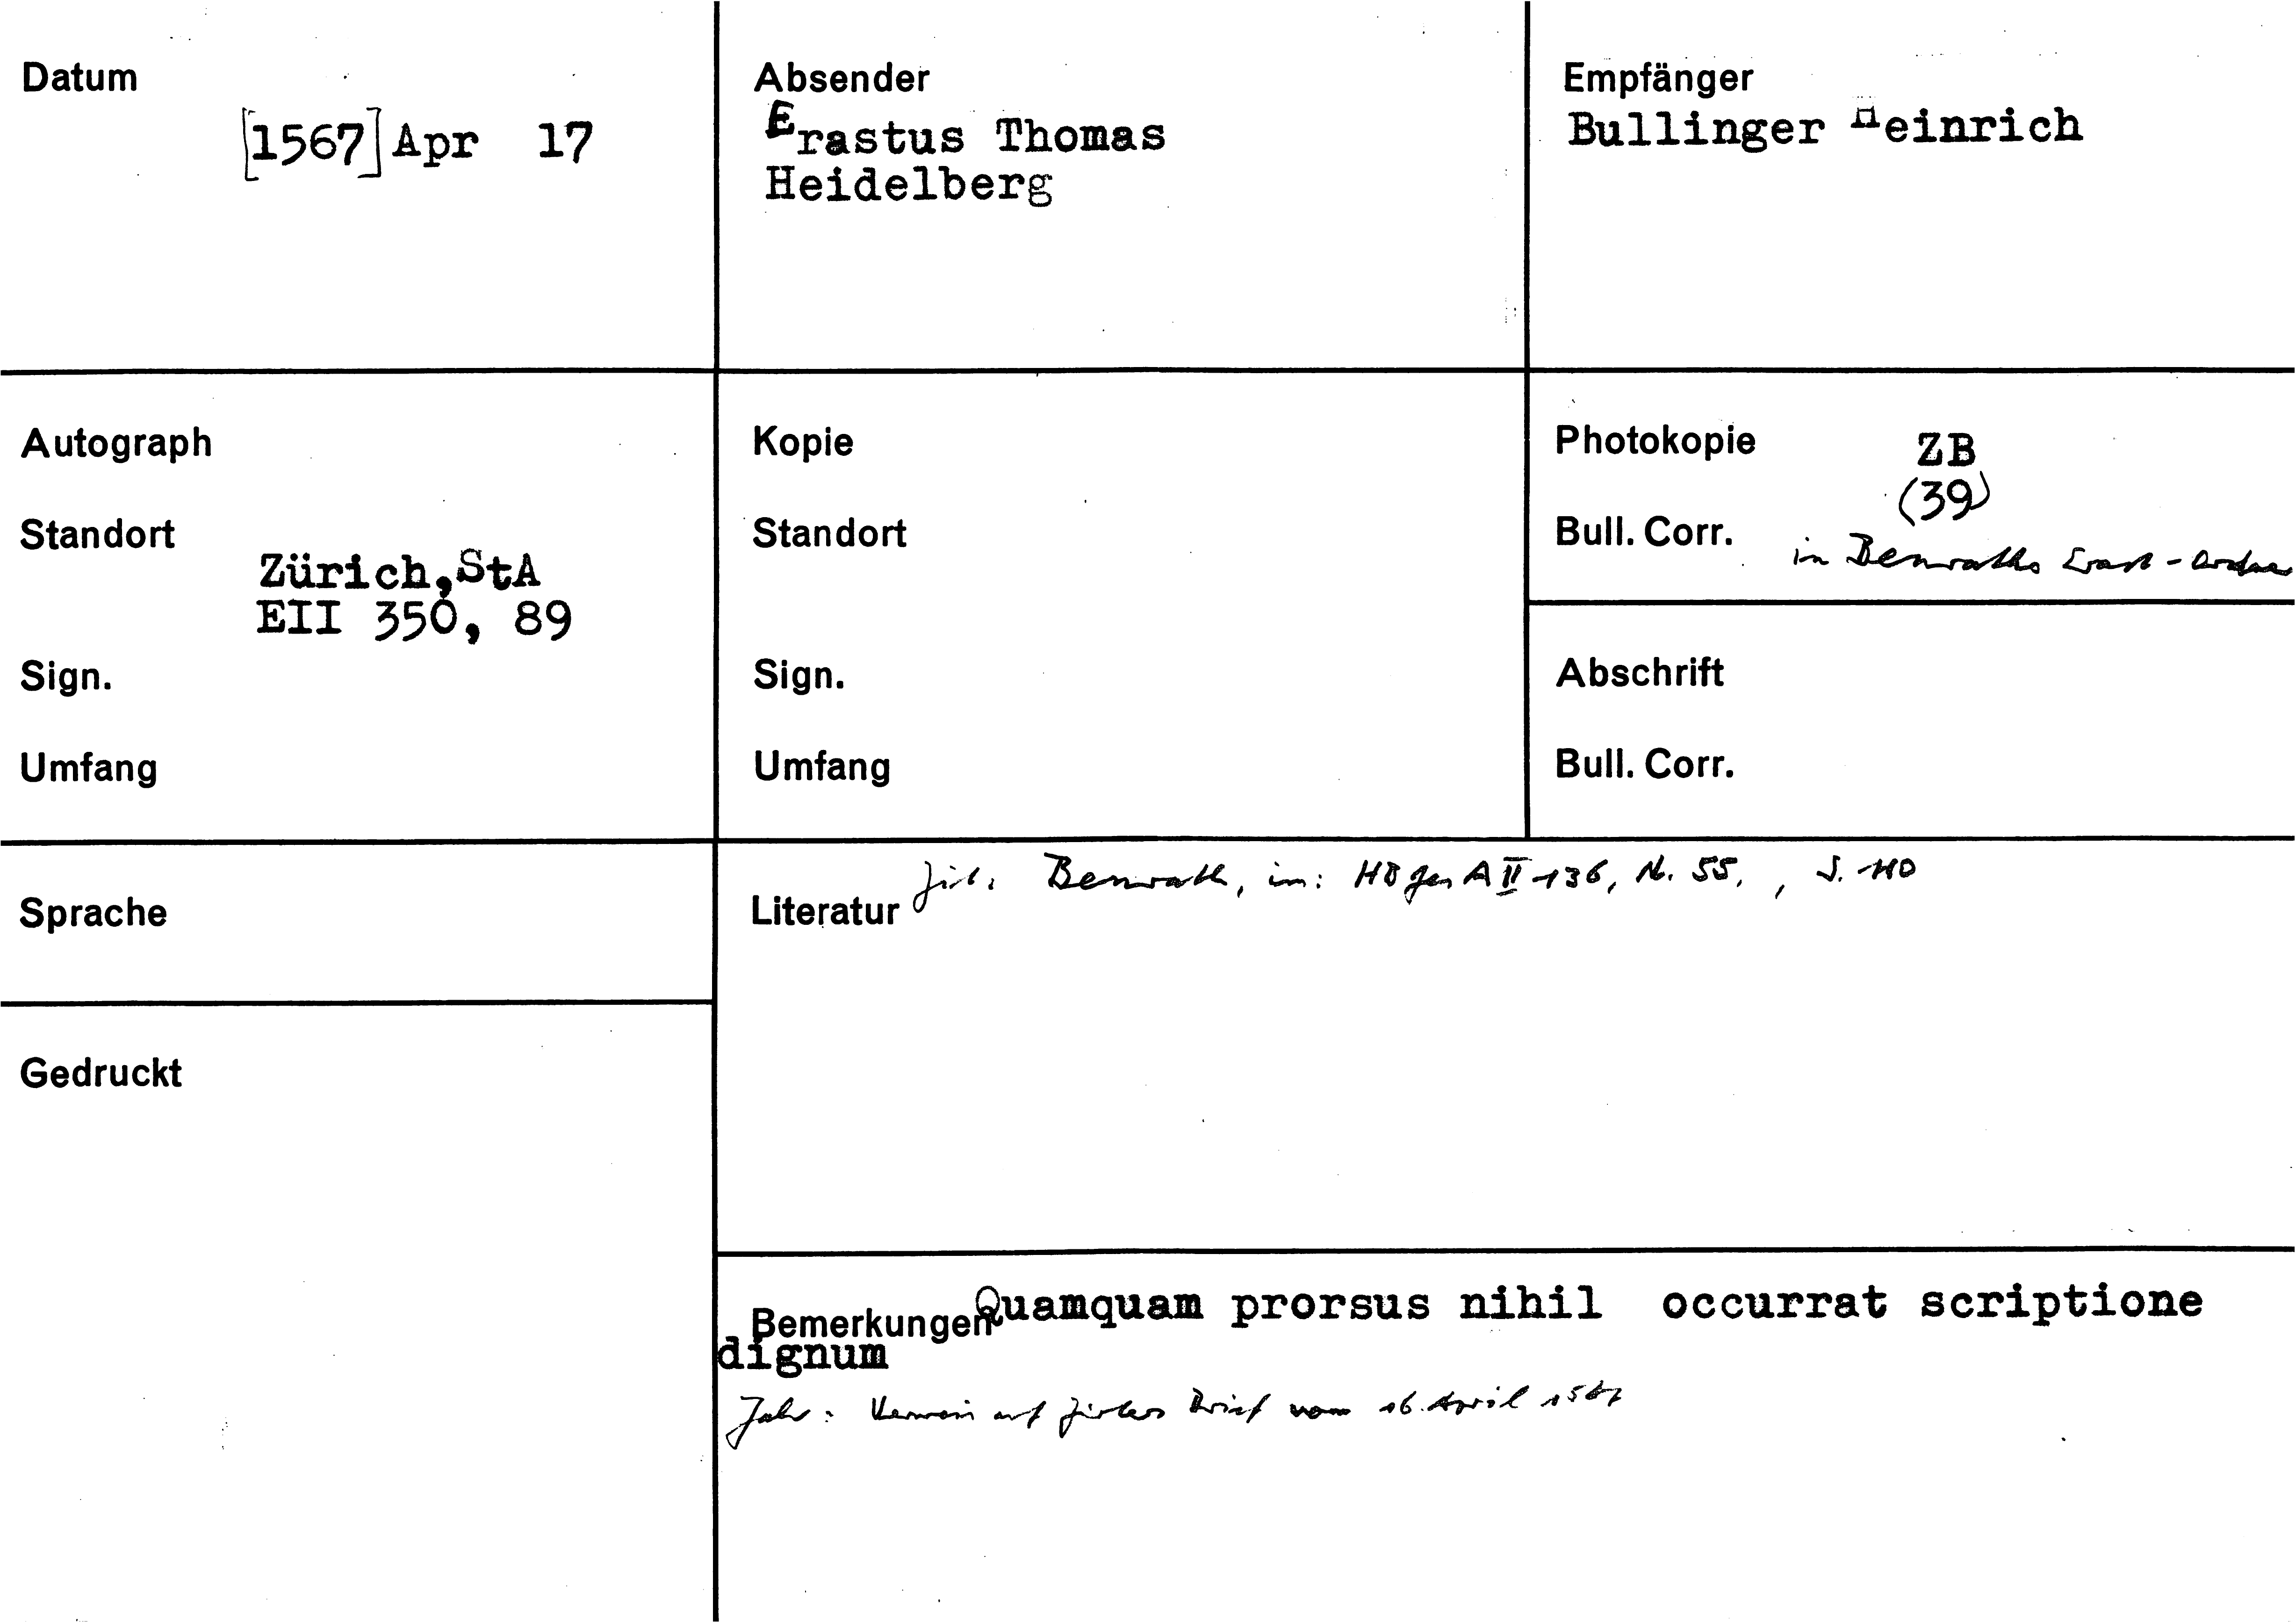 Datum
[1567] Apr 17
Absender
Erastus Thomas
Heidelberg
Empfänger
Bullinger Heinrich
Autograph
Standort
Zürich, StA
EII 350, 89
Sign.
Umfang
Kopie
Standort
Sign.
Umfang
Photokopie ZB
(39)
Bull. Corr. in Benraths Erast-
Abschrift
Bull. Corr.
Sprache
Literatur Zit. Benrath, in: HBgesA II 136, N. 55, , S. 110
Gedruckt
Bemerkungen Quamquam prorsus nihil occurrat scriptione
dignum
Jahr: Verweis auf Brief vom 16. April 1567